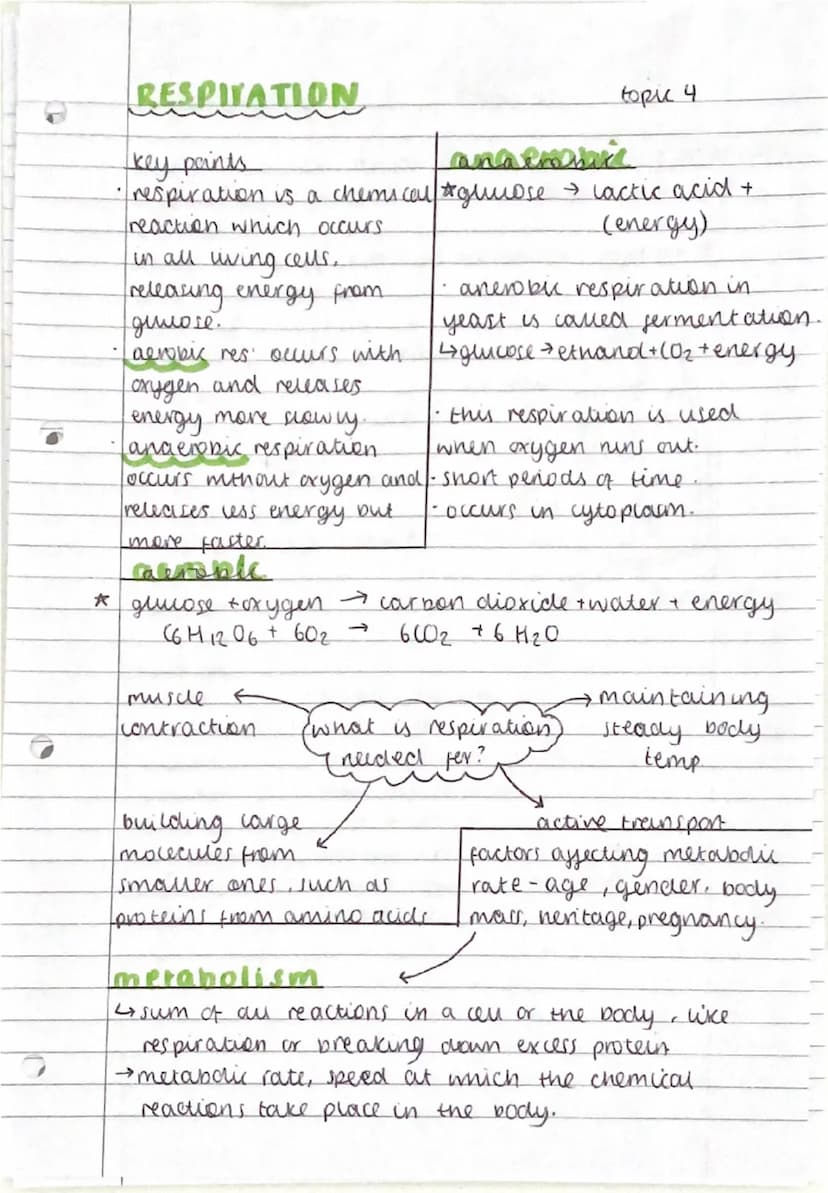 RESPIRATION
topic 4
key points
· respiration is a chemical
reaction which occurs
in all living cells,
releasing energy from
glucose.
· aerobic res' occurs with
oxygen and releases
energy more slowly.
· anaerobic respiration
occurs without oxygen and
releases less energy but
more faster.
anaerobic
*glucose → lactic acid +
(energy)
· anerobic respiration in
yeast is called fermentation.
↳glucose→ethanol+CO₂+energy
· this respiration is used
when oxygen runs out.
· short periods of time.
· occurs in cytoplasm.
aerobic
* glucose + oxygen → carbon dioxide + water + energy
C6H12O6 + 6O2 → 6CO2 + 6H2O
what is respiration
needed for?
muscle
contraction
maintaining
steady body
temp
building large
molecules from
smaller ones, such as
proteins from amino acids
active transport
factors affecting metabolic
rate - age, gender, body
mass, heritage, pregnancy.
metabolism
↳ sum of all reactions in a cell or the body, like
respiration or breaking down excess protein
→ metabolic rate, speed at which the chemical
reactions take place in the body.